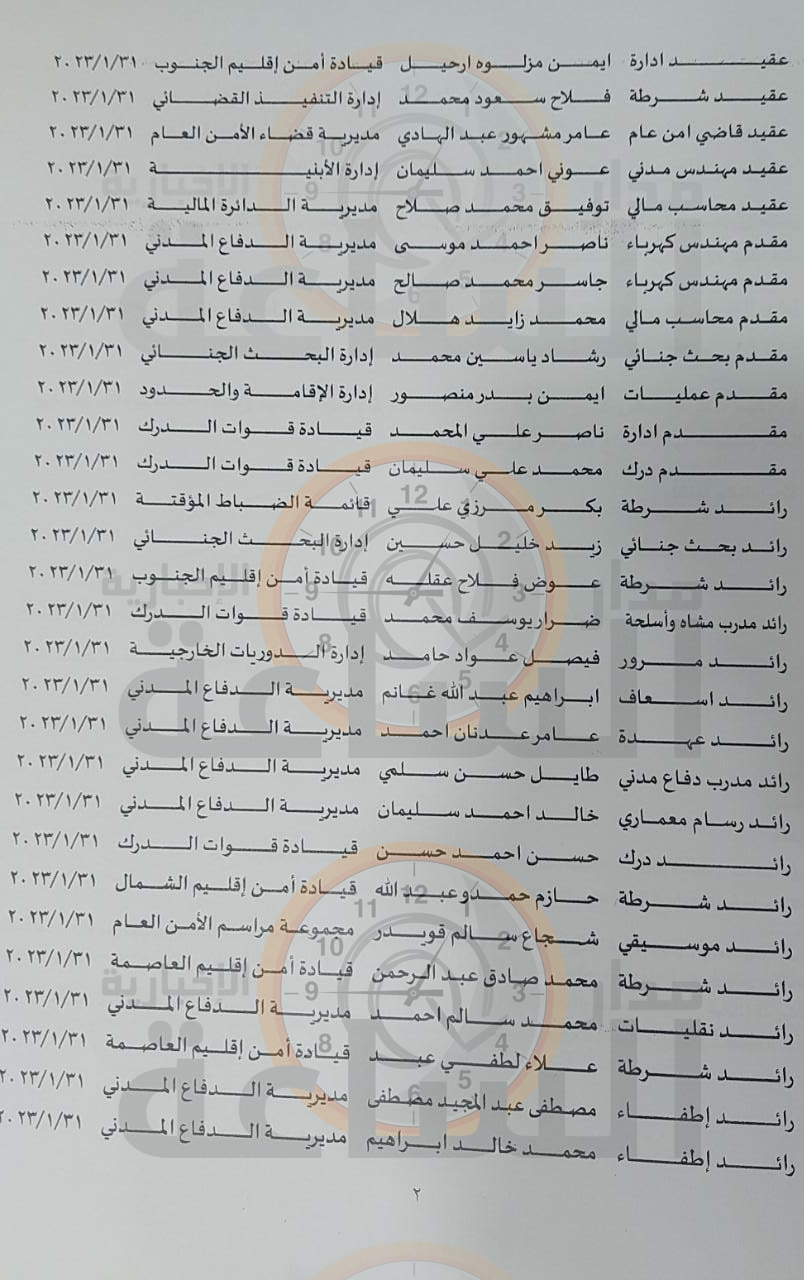 عقيد ادارة ايمن مزلوه ارحيل قيادة أمن إقليم الجنوب ٢٠٢٣/١/٣١
عقيد شرطة فلاح سعود محمد إدارة التنفيذ القضائي ٢٠٢٣/١/٣١
عقيد قاضي امن عام عامر مشهور عبد الهادي مديرية قضاء الأمن العام ٢٠٢٣/١/٣١
عقيد مهندس مدني عوني احمد سليمان إدارة الأبنية ٢٠٢٣/١/٣١
عقيد محاسب مالي توفيق محمد صلاح مديرية الدائرة المالية ٢٠٢٣/١/٣١
مقدم مهندس كهرباء ناصر احمد موسى مديرية الدفاع المدني ٢٠٢٣/١/٣١
مقدم مهندس كهرباء جاسر محمد صالح مديرية الدفاع المدني ٢٠٢٣/١/٣١
مقدم محاسب مالي محمد زايد هلال مديرية الدفاع المدني ٢٠٢٣/١/٣١
مقدم بحث جنائي رشاد ياسين محمد إدارة البحث الجنائي ٢٠٢٣/١/٣١
مقدم عمليات ايمن بدر منصور إدارة الإقامة والحدود ٢٠٢٣/١/٣١
مقدم ادارة ناصر علي المحمد قيادة قوات الدرك ٢٠٢٣/١/٣١
مقدم درك محمد علي سليمان قيادة قوات الدرك ٢٠٢٣/١/٣١
رائد شرطة بكر مرزي علي قائمة الضباط المؤقتة ٢٠٢٣/١/٣١
رائد بحث جنائي زيد خليل حسين إدارة البحث الجنائي ٢٠٢٣/١/٣١
رائد شرطة عوض فلاح عقله قيادة أمن إقليم الجنوب ٢٠٢٣/١/٣١
رائد مدرب مشاه وأسلحة ضرار يوسف محمد قيادة قوات الدرك ٢٠٢٣/١/٣١
رائد مرور فيصل عواد حامد إدارة الدوريات الخارجية ٢٠٢٣/١/٣١
رائد اسعاف ابراهيم عبد الله غانم مديرية الدفاع المدني ٢٠٢٣/١/٣١
رائد عهدة عامر عدنان احمد مديرية الدفاع المدني ٢٠٢٣/١/٣١
رائد مدرب دفاع مدني طايل حسن سلمي مديرية الدفاع المدني ٢٠٢٣/١/٣١
رائد رسام معماري خالد احمد سليمان مديرية الدفاع المدني ٢٠٢٣/١/٣١
رائد درك حسن احمد حسن قيادة قوات الدرك ٢٠٢٣/١/٣١
رائد شرطة حازم حمدو عبد الله قيادة أمن إقليم الشمال ٢٠٢٣/١/٣١
رائد موسيقي شجاع سالم قويدر مجموعة مراسم الأمن العام ٢٠٢٣/١/٣١
رائد شرطة محمد صادق عبد الرحمن قيادة أمن إقليم العاصمة ٢٠٢٣/١/٣١
رائد نقليات محمد سالم احمد مديرية الدفاع المدني ٢٠٢٣/١/٣١
رائد شرطة علاء لطفي عبد قيادة أمن إقليم العاصمة ٢٠٢٣/١/٣١
رائد إطفاء مصطفى عبد المجيد مصطفى مديرية الدفاع المدني ٢٠٢٣/١/٣١
رائد إطفاء محمد خالد ابراهيم مديرية الدفاع المدني ٢٠٢٣/١/٣١
٢
مدار الساعة الإخبارية